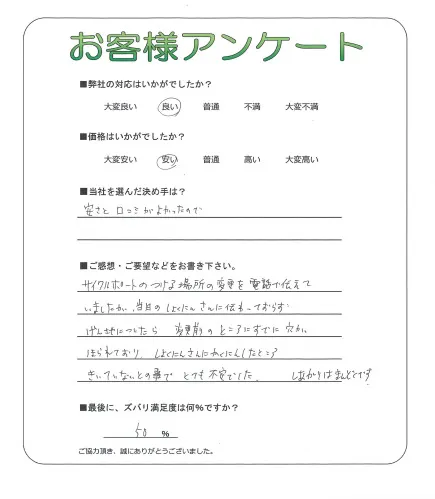 お客様アンケート
■弊社の対応はいかがでしたか?
大変良い 良い 普通 不満 大変不満
■価格はいかがでしたか?
大変安い 安い 普通 高い 大変高い
■当社を選んだ決め手は?
安さと口コミがよかったので
■ご感想・ご要望などをお書き下さい。
サイクルポートのつける場所の変更を電話で伝えて
いましたが、当日のしょくにんさんに伝わっておらず
げん地についたら 変更前のところにすでに穴が、
ほられており、しょくにんさんにかくにんしたところ
きいていないとの事で とても不安でした。 しあがりはまんぞくです
■最後に、ズバリ満足度は何%ですか?
50 %
ご協力頂き、誠にありがとうございました。